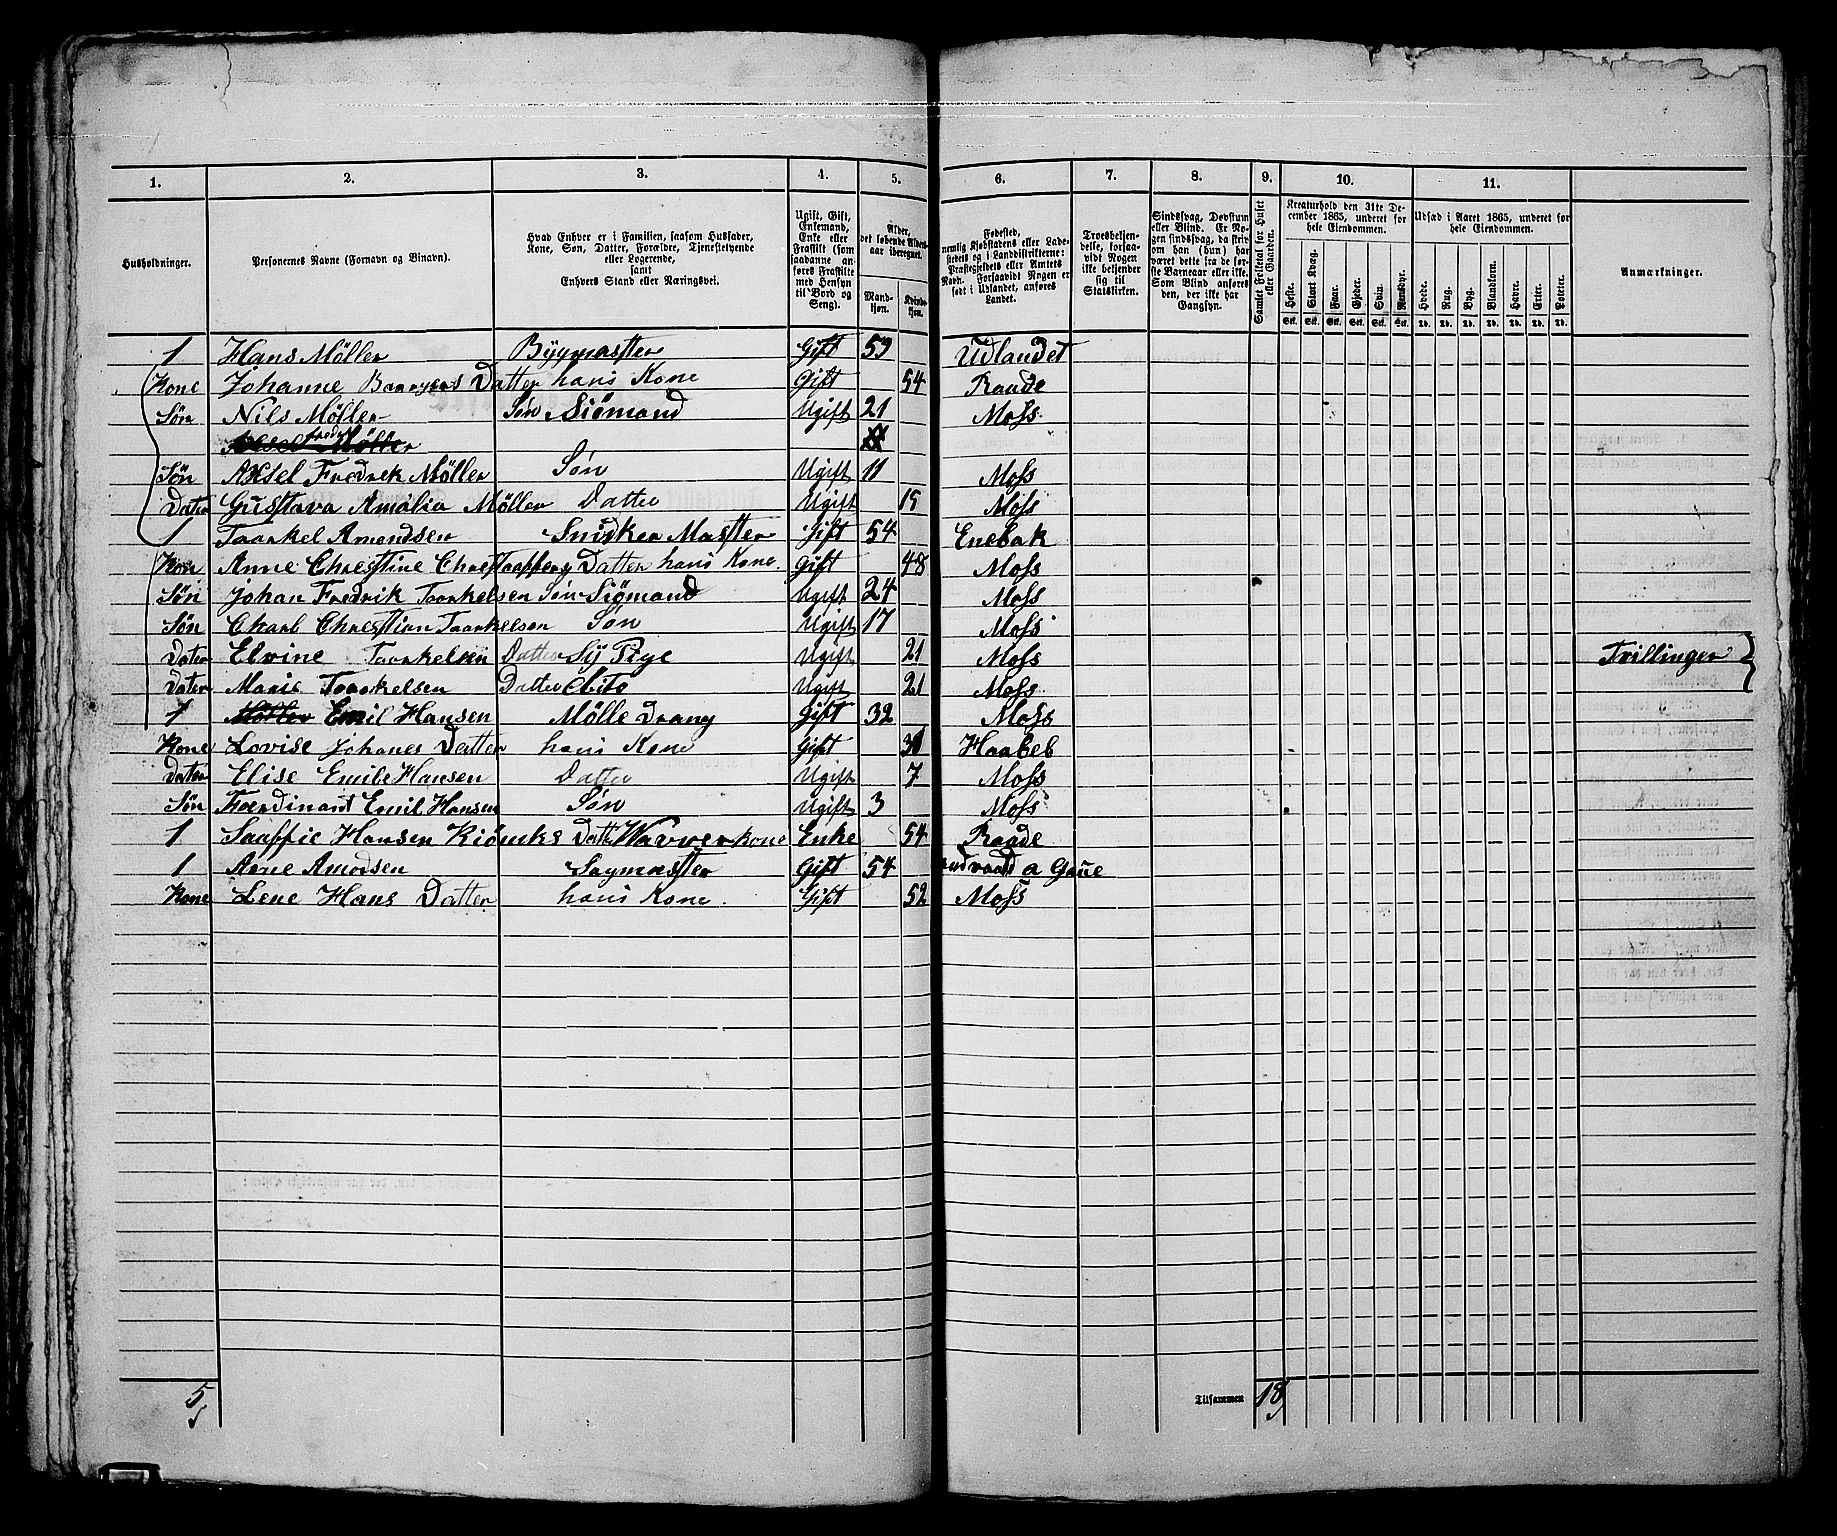 1. 2. 3. 4. 5. 6. 7. 8. 9. 10. 11.
Husholdninger. Personernes Navne (Fornavn og Tilnavn). Hvad Enhver er i Familien, saasom Husfader, Kone, Søn, Datter, Forældre, Tjenestetyende eller Logerende, samt Enhvers Stand eller Næringsvei. Ugift, Gift, Enkemand, Enke eller Fraskilt (som saadanne anføres Fraskilte med Hensyn til Bord og Seng). Alder, det løbende Alders-aar iberegnet. Mand-kjøn. Kvinde-kjøn. Fødested, nemlig Kjøbstadens eller Lade-stedets og i Landdistrikterne: Præstegjeldets eller Amtets Navn. Forsaavidt Nogen er født i Udlandet, anføres Landet. Troesbekjen-delse, forsaa-vidt Nogen ikke bekjender sig til Statskirken. Sindssvag, Døvstum eller Blind. Er No-gen sindssvag, da skriv om han (hun) har været dette fra de før-ste Barneaar eller ikke. Som Blind anføres den, der ikke har Gangsyn. Samlet Folketal for Huset eller Gaarden. Kreaturhold den 31te De-cember 1865, underet for hele Eiendommen. Udsæd i Aaret 1865, underet for hele Eiendommen. Anmærkninger.
Heste. Stort Kvæg. Faar. Gjeder. Svin. Rensdyr. Hvede. Rug. Byg. Blandkorn. Havre. Erter. Poteter.
Stk. Stk. Stk. Stk. Stk. Stk. Td. Td. Td. Td. Td. Td. Td.
1 Hans Møller Bygmaster Gift 59 Udlandet
Kone Johanne Datter hans Kone Gift 54 Raade
Søn Nils Møller Søn Siömand Ugift 21 Moss
Møller
Søn Axsel Fredrek Møller Søn Ugift 11 Moss
Dater Gustava Amalia Møller Datter Ugift 15 Moss
1 Taarkel Amendsen Snidker Master Gift 54 Enebak
Kone Anne Chrestine Datter hans Kone Gift 48 Moss
Søn Johan Fredrik Taarkelsen Søn Siömand Ugift 24 Moss
Søn Charl Chrestian Taarkelsen Søn Ugift 17 Moss
Dater Elvine Taarkelsen Datter Sy Pige Ugift 21 Moss Tvillinger
Dater Maris Taarkelsen Datter Ugift 21 Moss
1 Møller Emil Hansen Mølle Drang Gift 32 Moss
Kone Lovise Johanes Datter hans Kone Gift 31 Haabel
Dater Elise Emile Hansen Datter Ugift 7 Moss
Søn Ferdinant Emil Hansen Søn Ugift 3 Moss
1 Saaffie Hansen Datter Enke 54 Raade
1 Arne Amodsen Sagmaster Gift 54
Kone Lene Hans Datter hans Kone Gift 52 Moss
5 Tilsammen 18